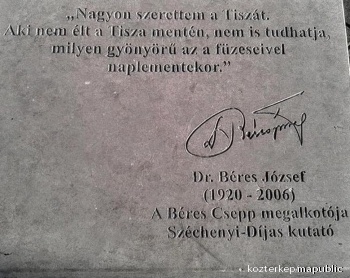 „Nagyon szerettem a Tiszát.
Aki nem élt a Tisza mentén, nem is tudhatja,
milyen gyönyörű az a füzeseivel
naplementekor.”
Dr. Béres József
(1920 - 2006)
A Béres Csepp megalkotója
Széchenyi-Díjas kutató
kozterkep.mapublic